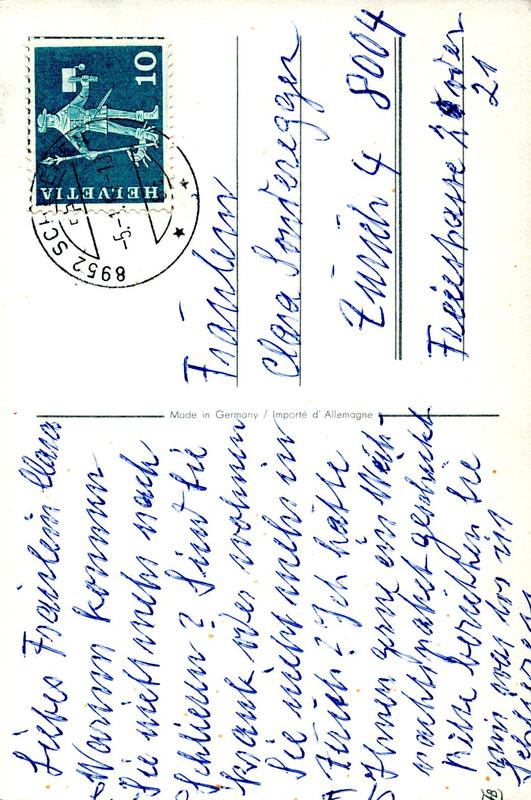 Liebes Fräulein Clara
Warum kommen
Sie nicht mehr nach
Schlieren? Sind Sie
krank oder wohnen
Sie nicht mehr in
Zürich? Ich hätte
Ihnen gerne ein Weih-
nachtspaket geschickt
Bitte berichten Sie
mir was los ist
Made in Germany / Importé d'Allemagne
HELVETIA
10
8952 SCH
Fräulein
Clara Sonderegger
Zürich 4 8004
Freiestrasse 21 oder
21